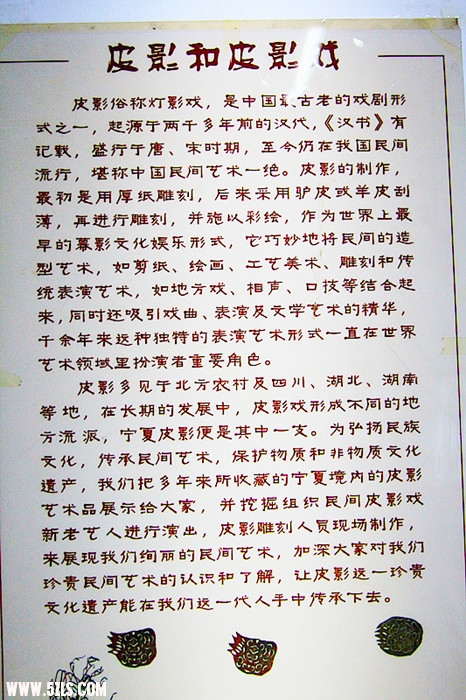 皮影和皮影戏
皮影俗称灯影戏，是中国最古老的戏剧形
式之一，起源于两千多年前的汉代，《汉书》有
记载，盛行于唐、宋时期，至今仍在我国民间
流行，堪称中国民间艺术一绝。皮影的制作，
最初是用厚纸雕刻，后来采用驴皮或羊皮刮
薄，再进行雕刻，并施以彩绘，作为世界上最
早的幕影文化娱乐形式，它巧妙地将民间的造
型艺术，如剪纸、绘画、工艺美术、雕刻和传
统表演艺术，如地方戏、相声、口技等结合起
来，同时还吸引戏曲、表演及文学艺术的精华，
千余年来这种独特的表演艺术形式一直在世界
艺术领域里扮演者重要角色。
皮影多见于北方农村及四川、湖北、湖南
等地，在长期的发展中，皮影戏形成不同的地
方流派，宁夏皮影便是其中一支。为弘扬民族
文化，传承民间艺术，保护物质和非物质文化
遗产，我们把多年来所收藏的宁夏境内的皮影
艺术品展示给大家，并挖掘组织民间皮影戏
新老艺人进行演出，皮影雕刻人员现场制作，
来展现我们绚丽的民间艺术，加深大家对我们
珍贵民间艺术的认识和了解，让皮影这一珍贵
文化遗产能在我们这一代人手中传承下去。
WWW.5ZLS.COM